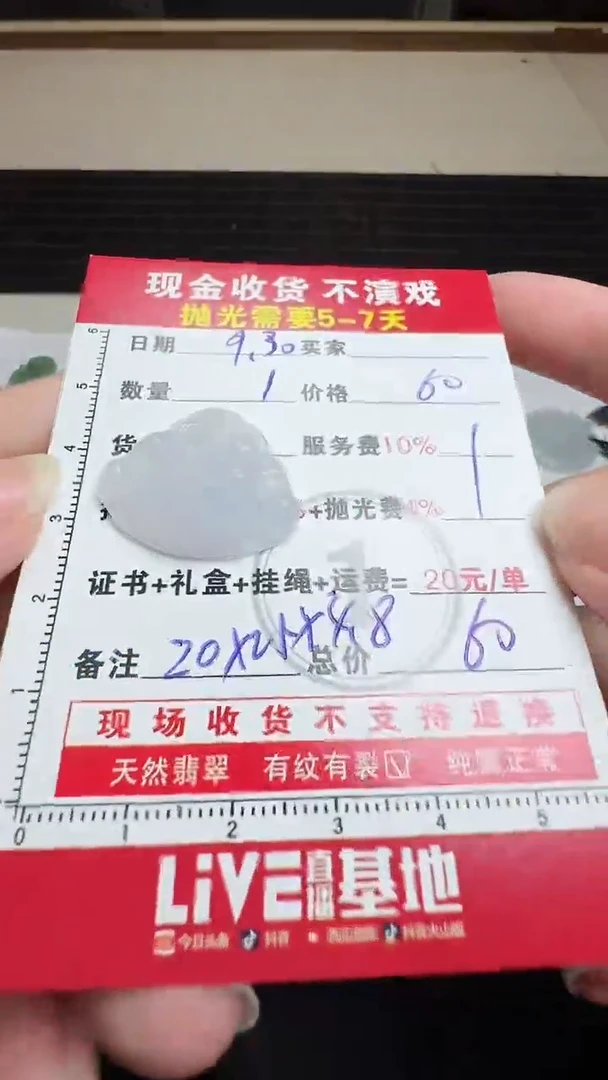 现金收货 不演戏
抛光需要5-7天
日期 9.30 买家
数量 1 价格 60
货 服务费10%
+抛光费
证书+礼盒+挂绳+运费= 20元/单
备注 总价 60
现场收货不支持退换
天然翡翠 有纹有裂☑ 纯属正常
0 1 2 3 4 5
1 2 3 4 5 6
LiVE直播基地
今日头条 抖音 西瓜视频 抖音火山版